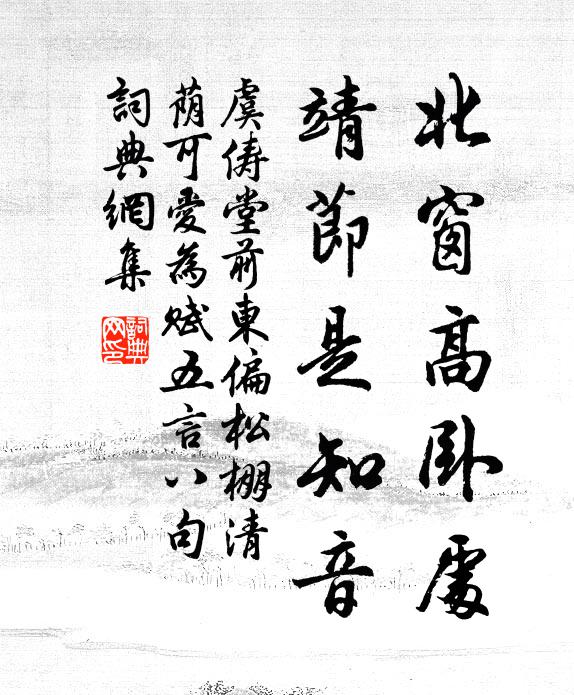 北窗高卧處
靖節是知音
虞俦堂前東偏松棚清
蔭可愛為賦五言八句
詞典網集
詞典
网印